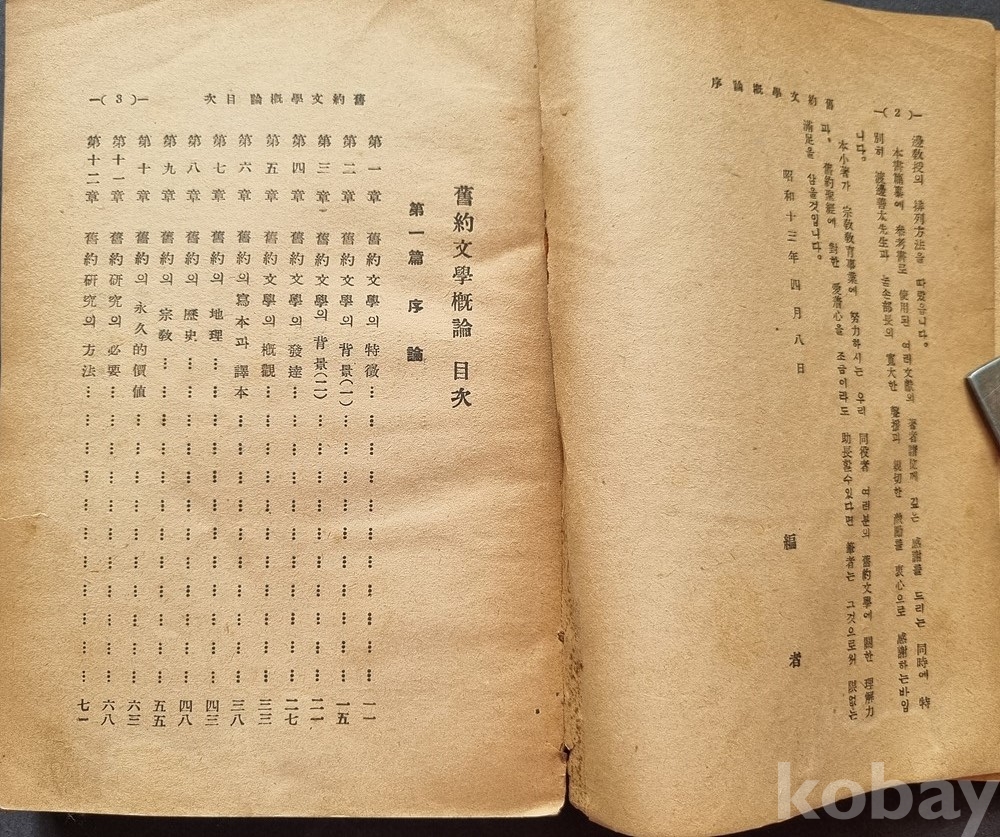 舊約文學槪論序
—( 2 )—
邊敎授의 排列方法을 따랐읍니다。
本書編纂에 參考書로 使用된 여러文獻의 著者諸位께 깊은 感謝를 드리는 同時에 特
別히 渡邊善太先生과 놀손部長의 寬大한 聲援과 親切한 鼓勵를 衷心으로 感謝하는바입
니다。
本小著가 宗敎敎育事業에 努力하시는 우리 同役者 여러분의 舊約文學에 關한 理解力
과、舊約聖經에 對한 愛着心을 조금이라도 助長할수있다면 筆者는 그것으로써
滿足을 삼을것입니다。
昭和十三年四月八日
編者
舊約文學槪論目次
—( 3 )—
舊約文學槪論 目次
第一篇 序論
第一章 舊約文學의 特徵……一一
第二章 舊約文學의 背景(一)……一五
第三章 舊約文學의 背景(二)……二一
第四章 舊約文學의 發達……二七
第五章 舊約文學의 槪觀……三三
第六章 舊約의 寫本과 譯本……三八
第七章 舊約의 地理……四三
第八章 舊約의 歷史……四八
第九章 舊約의 宗敎……五五
第十章 舊約의 永久的價値……六三
第十一章 舊約硏究의 必要……六八
第十二章 舊約硏究의 方法……七一
kobay